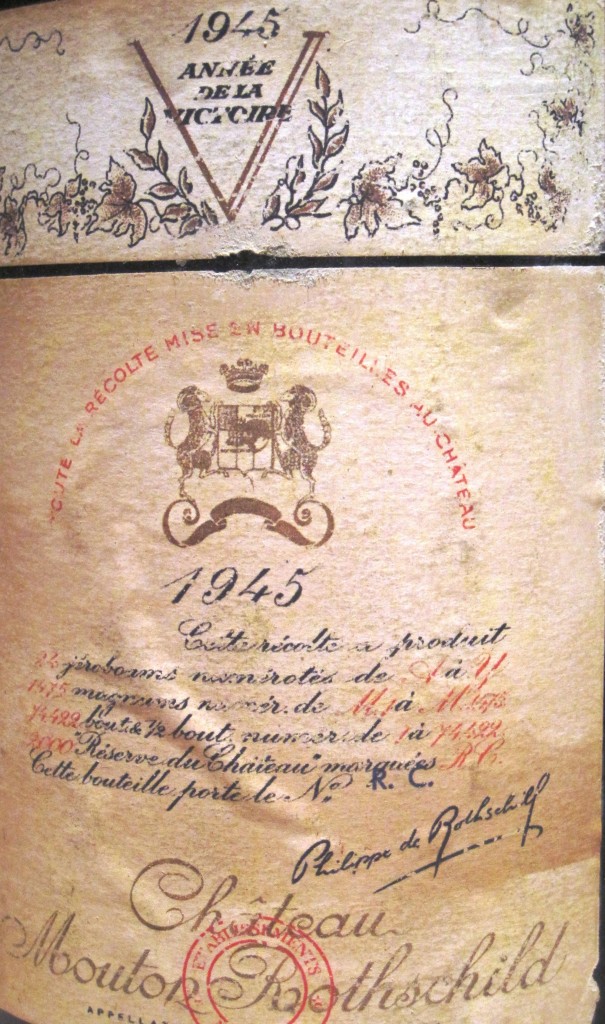 1945
ANNÉE
DE LA
VICTOIRE
TOUTE LA RÉCOLTE MISE EN BOUTEILLES AU CHÂTEAU
1945
Cette récolte a produit
24 jéroboams numérotés de A à Y
1475 magnums numér. de M.1 à M.1475
74422 bout. & ½ bout. numér. de 1 à 74422
2000 "Réserve du Château" marquées R.C.
Cette bouteille porte le No R. C.
Philippe de Rothschild
Château
Mouton Rothschild
ÉTABLISSEMENTS